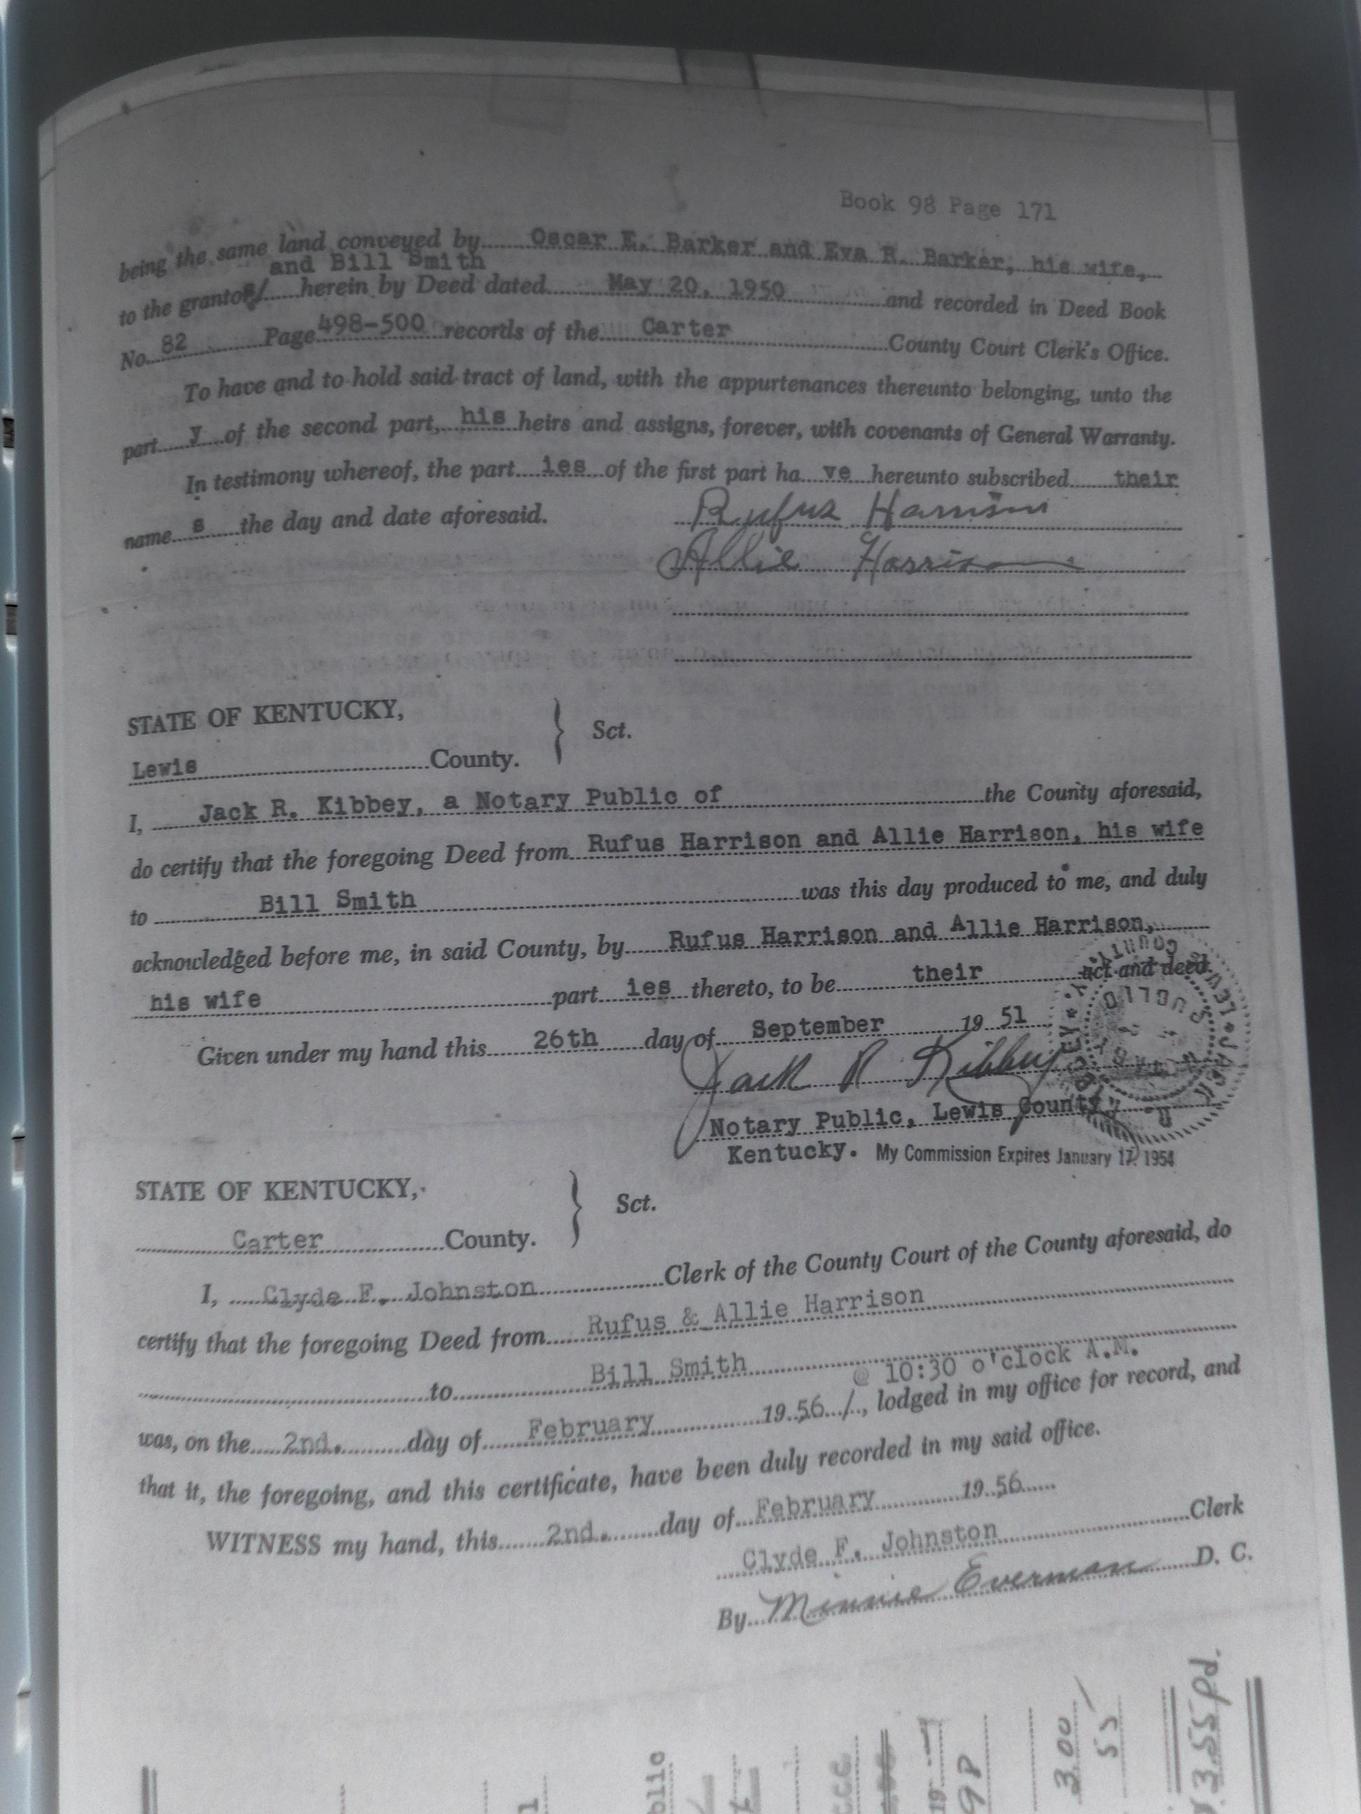 Book 98 Page 171
being the same land conveyed by Oscar E. Barker and Eva R. Barker, his wife,
and Bill Smith
to the grantors/ herein by Deed dated May 20, 1950 and recorded in Deed Book
No. 82 Page 498-500 records of the Carter County Court Clerk's Office.
To have and to hold said tract of land, with the appurtenances thereunto belonging, unto the
part y of the second part, his heirs and assigns, forever, with covenants of General Warranty.
In testimony whereof, the part ies of the first part ha ve hereunto subscribed their
name s the day and date aforesaid.
Rufus Harrison
Allie Harrison
STATE OF KENTUCKY,
Sct.
Lewis County.
I, Jack R. Kibbey, a Notary Public of the County aforesaid,
do certify that the foregoing Deed from Rufus Harrison and Allie Harrison, his wife
to Bill Smith was this day produced to me, and duly
acknowledged before me, in said County, by Rufus Harrison and Allie Harrison,
his wife part ies thereto, to be their act and deed.
Given under my hand this 26th day of September 19 51
Jack R Kibbey
Notary Public, Lewis County,
Kentucky. My Commission Expires January 17, 1954
STATE OF KENTUCKY,
Sct.
Carter County.
I, Clyde F. Johnston Clerk of the County Court of the County aforesaid, do
certify that the foregoing Deed from Rufus & Allie Harrison
to Bill Smith @ 10:30 o'clock A.M.
was, on the 2nd. day of February 19 56 /, lodged in my office for record, and
that it, the foregoing, and this certificate, have been duly recorded in my said office.
WITNESS my hand, this 2nd. day of February 19 56
Clyde F. Johnston Clerk
By Minnie Everman D. C.
blic
19
98
3.00
55
3.55 pd.